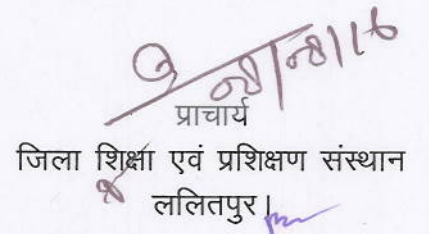 प्राचार्य
जिला शिक्षा एवं प्रशिक्षण संस्थान
ललितपुर।